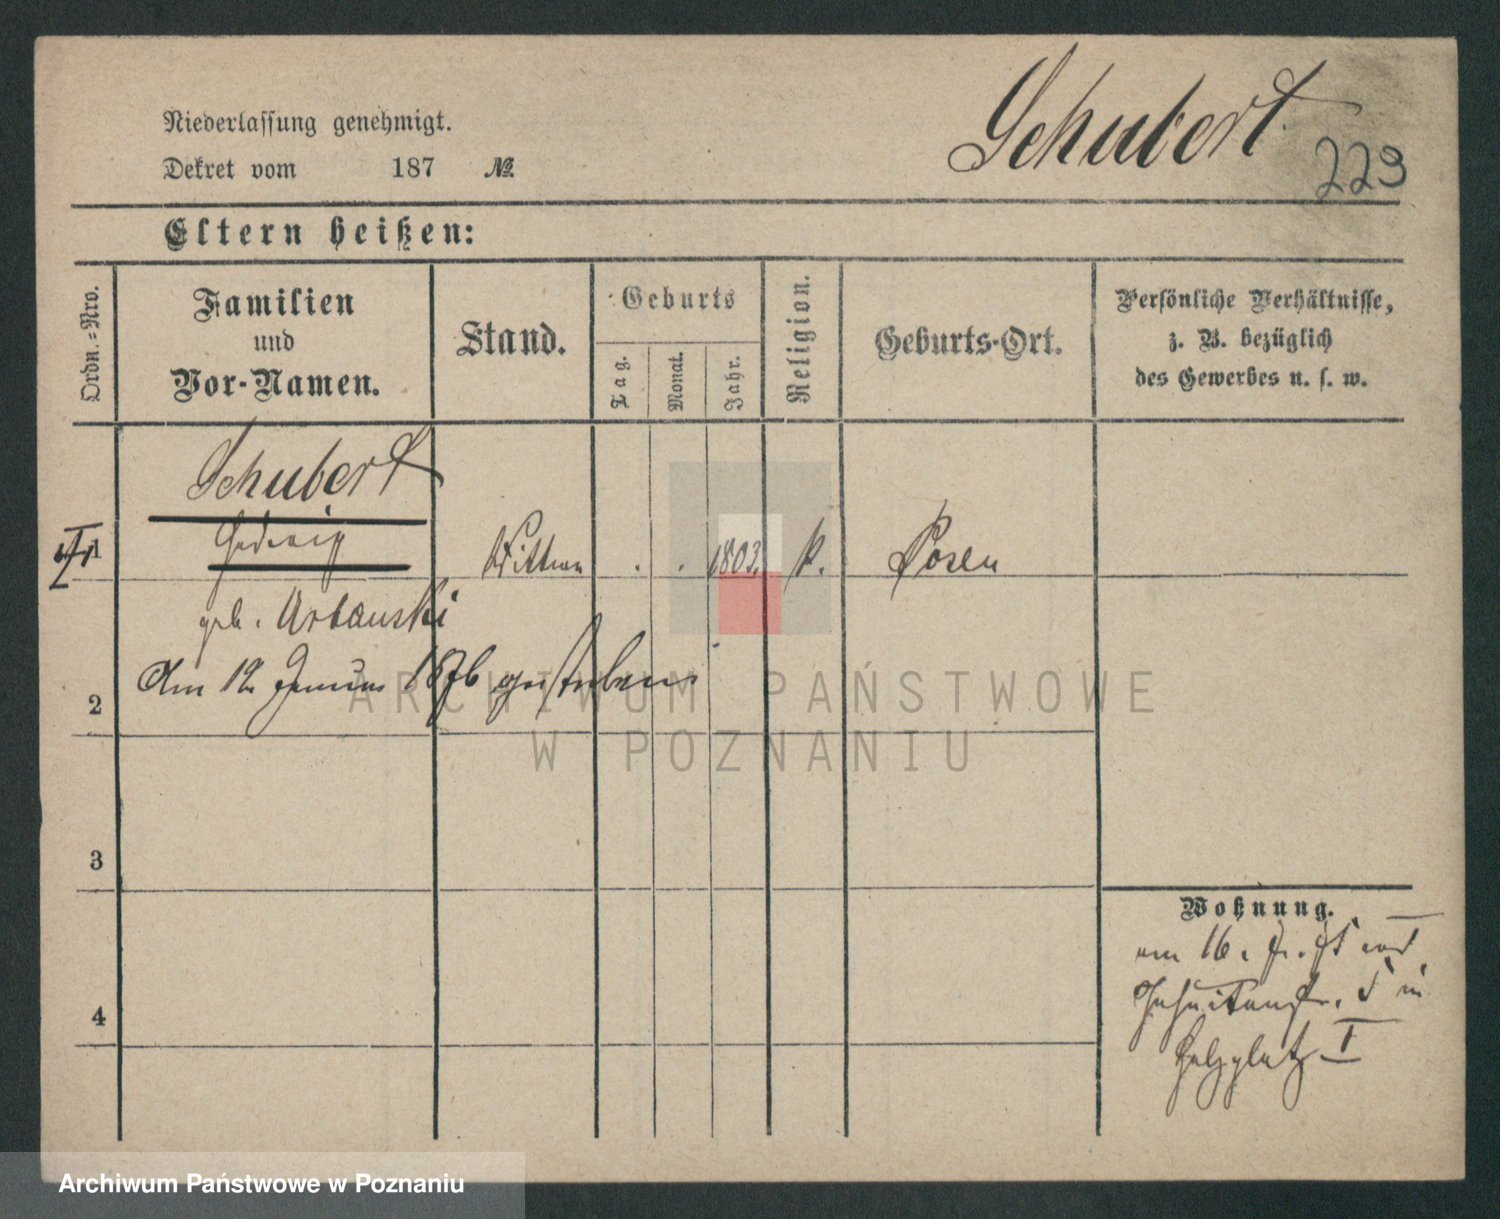 Schubert
223
Niederlassung genehmigt.
Dekret vom 187 №
Eltern heißen:
Ordn.=Nro.
Familien
und
Vor-Namen.
Stand.
Geburts
Tag.
Monat.
Jahr.
Religion.
Geburts-Ort.
Persönliche Verhältnisse,
z. B. bezüglich
des Gewerbes u. s. w.
Schubert
1 Hedwig Wittwe . . 1803. k. Posen
geb. Urbanski
Am 12 Januar 1876 gestorben
2
3
4
Wohnung.
am 16.
Jesuitenstr. 5 in
Holzplatz I
ARCHIWUM PAŃSTWOWE
W POZNANIU
Archiwum Państwowe w Poznaniu